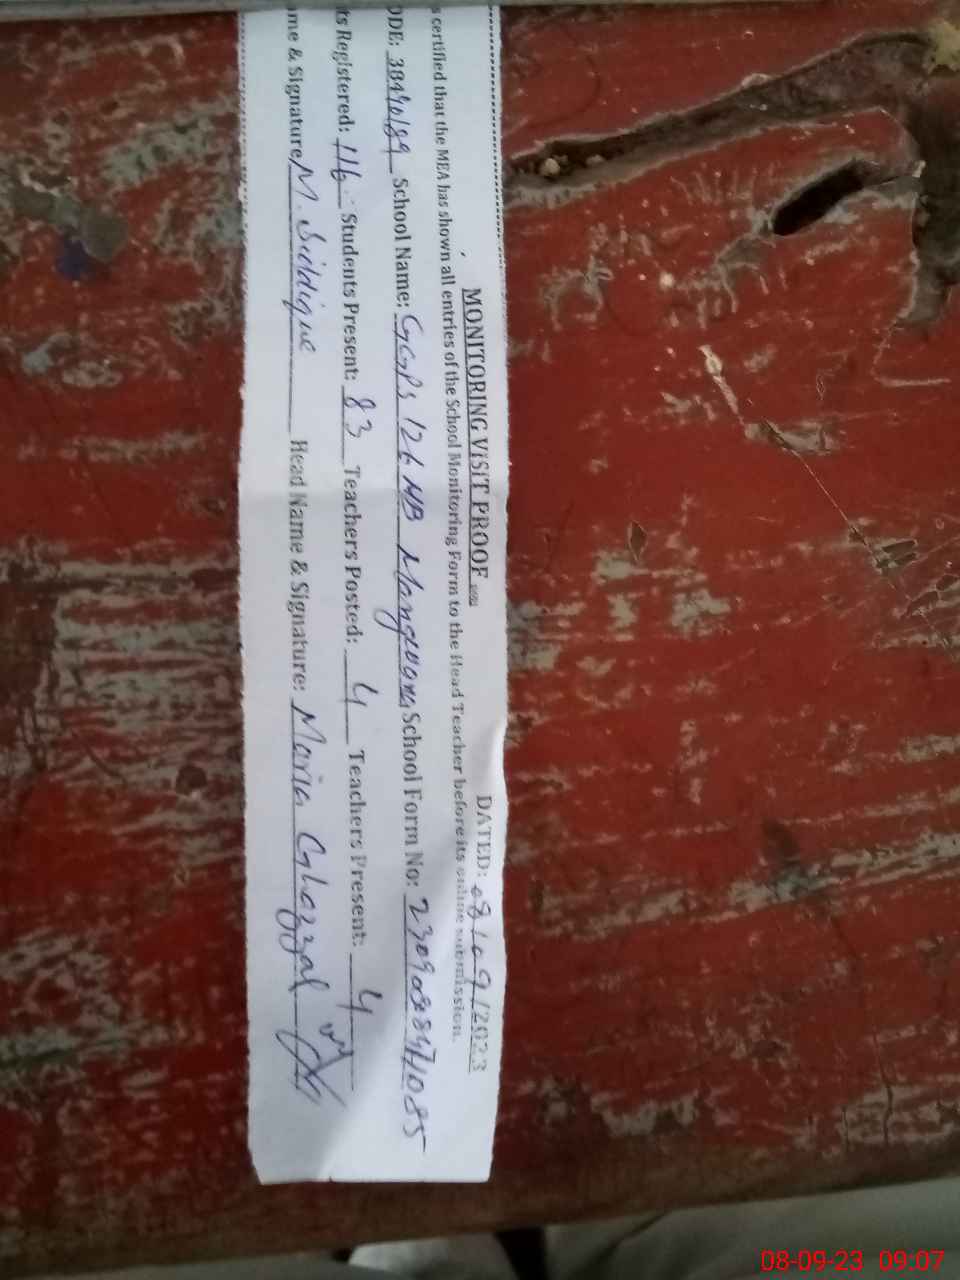 MONITORING VISIT PROOF
DATED: 08/09/2023
s certified that the MEA has shown all entries of the School Monitoring Form to the Head Teacher before its online submission.
ODE: School Name: GGPS 126 NB School Form No:
ts Registered: 116 Students Present: 83 Teachers Posted: 4 Teachers Present: 4
me & Signature M. Siddique Head Name & Signature: Maria Ghazzal
08-09-23 09:07